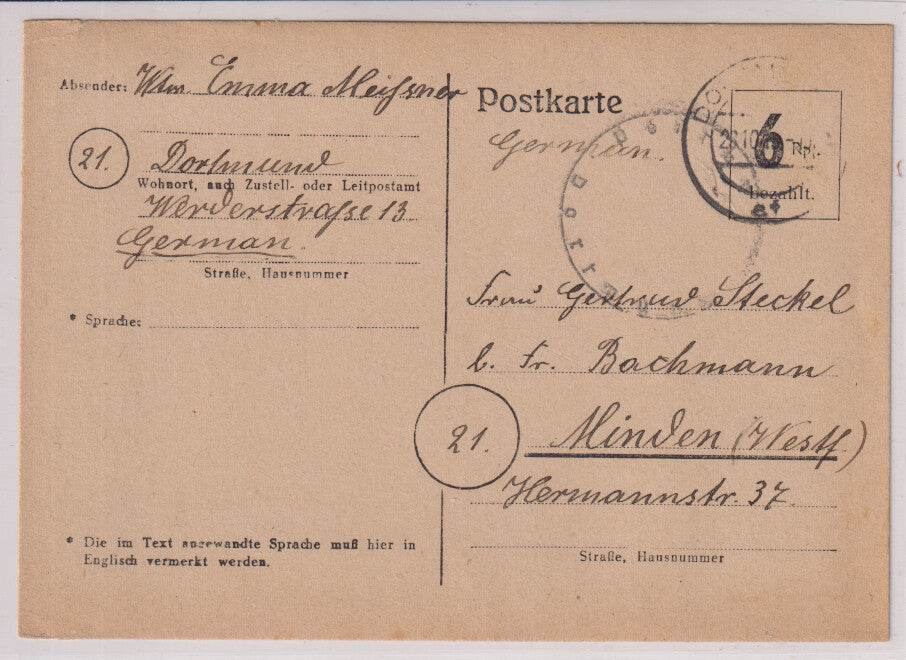 Absender: Wtw. Emma Meißner
21.
Dortmund
Wohnort, auch Zustell- oder Leitpostamt
Werderstraße 13
German.
Straße, Hausnummer
* Sprache:
* Die im Text angewandte Sprache muß hier in
Englisch vermerkt werden.
Postkarte
German.
6 Rpf.
bezahlt.
Frau Gertrud Steckel
b. Fr. Bachmann
21.
Minden (Westf)
Hermannstr. 37
Straße, Hausnummer